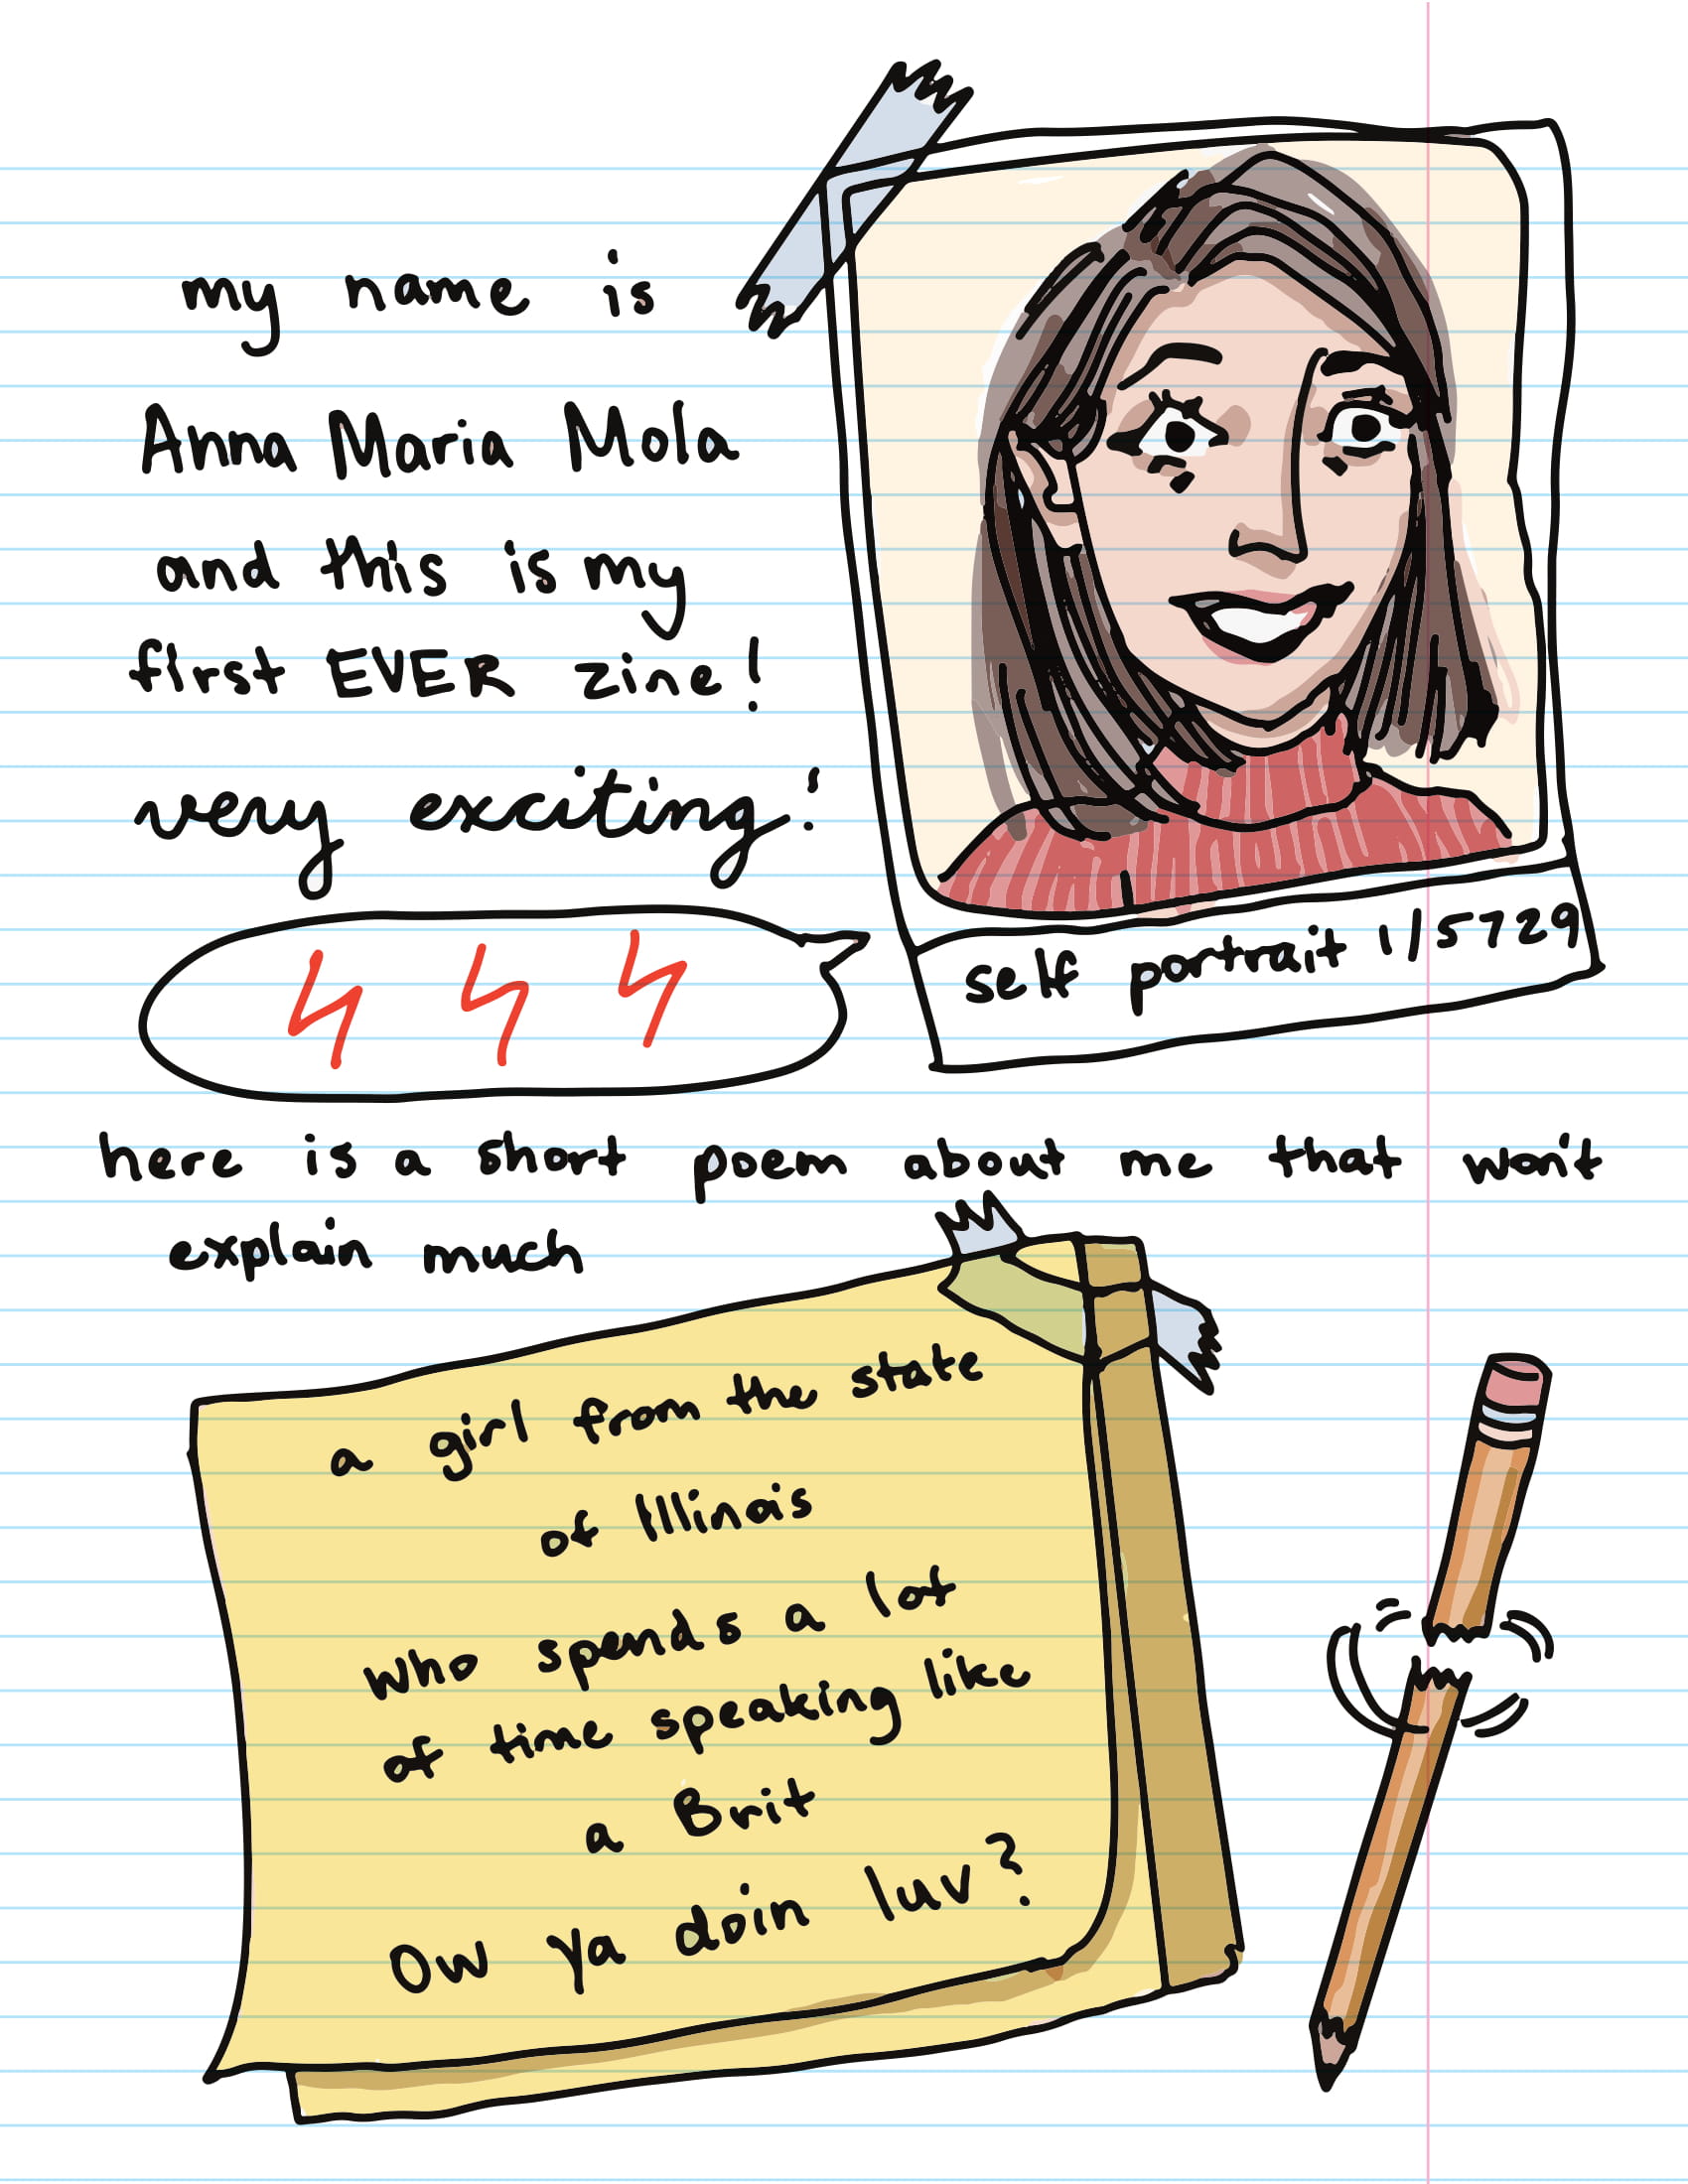 my name is
Anna Maria Mola
and this is my
first EVER zine!
very exciting!
self portrait 1/5729
here is a short poem about me that won't
explain much
a girl from the state
of Illinois
who spends a lot
of time speaking like
a Brit
Ow ya doin luv?